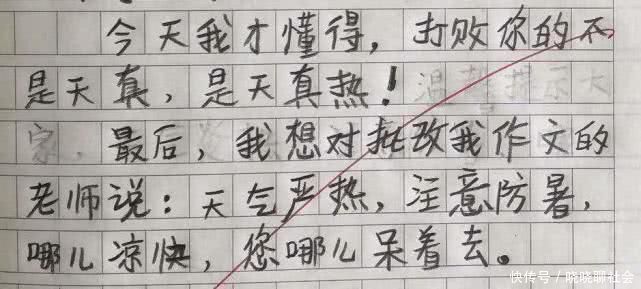 今天我才懂得，打败你的不
是天真，是天真热！温馨提示大
家，最后，我想对批改我作文的
老师说：天气严热，注意防暑，
哪儿凉快，您哪儿呆着去。
快传号/晓晓聊社会